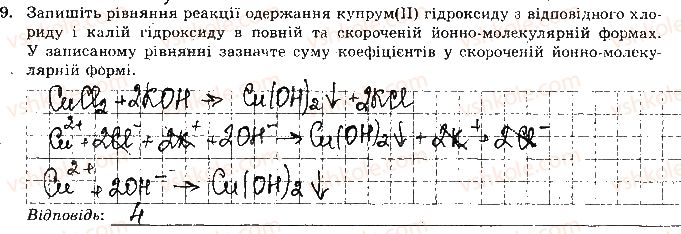 9. Запишіть рівняння реакції одержання купрум(II) гідроксиду з відповідного хло-
риду і калій гідроксиду в повній та скороченій йонно-молекулярній формах.
У записаному рівнянні зазначте суму коефіцієнтів у скороченій йонно-молеку-
лярній формі.
CuCl₂ + 2KOH → Cu(OH)₂↓ + 2KCl
Cu²⁺ + 2Cl⁻ + 2K⁺ + 2OH⁻ → Cu(OH)₂↓ + 2K⁺ + 2Cl⁻
Cu²⁺ + 2OH⁻ → Cu(OH)₂↓
Відповідь: 4